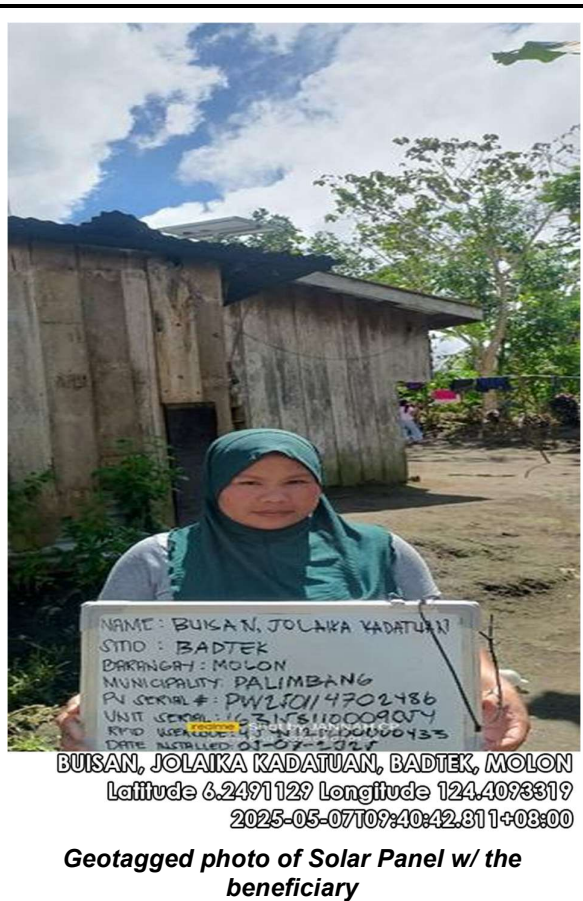 NAME: BUISAN, JOLAIKA KADATUAN
SITIO : BADTEK
BARANGAY: MOLON
MUNICIPALITY: PALIMBANG
PV SERIAL #: PW250114702486
UNIT SERIAL
realme
RFID
DATE INSTALLED: 05-07-2025
BUISAN, JOLAIKA KADATUAN, BADTEK, MOLON
Latitude 6.2491129 Longitude 124.4093319
2025-05-07T09:40:42.811+08:00
Geotagged photo of Solar Panel w/ the
beneficiary